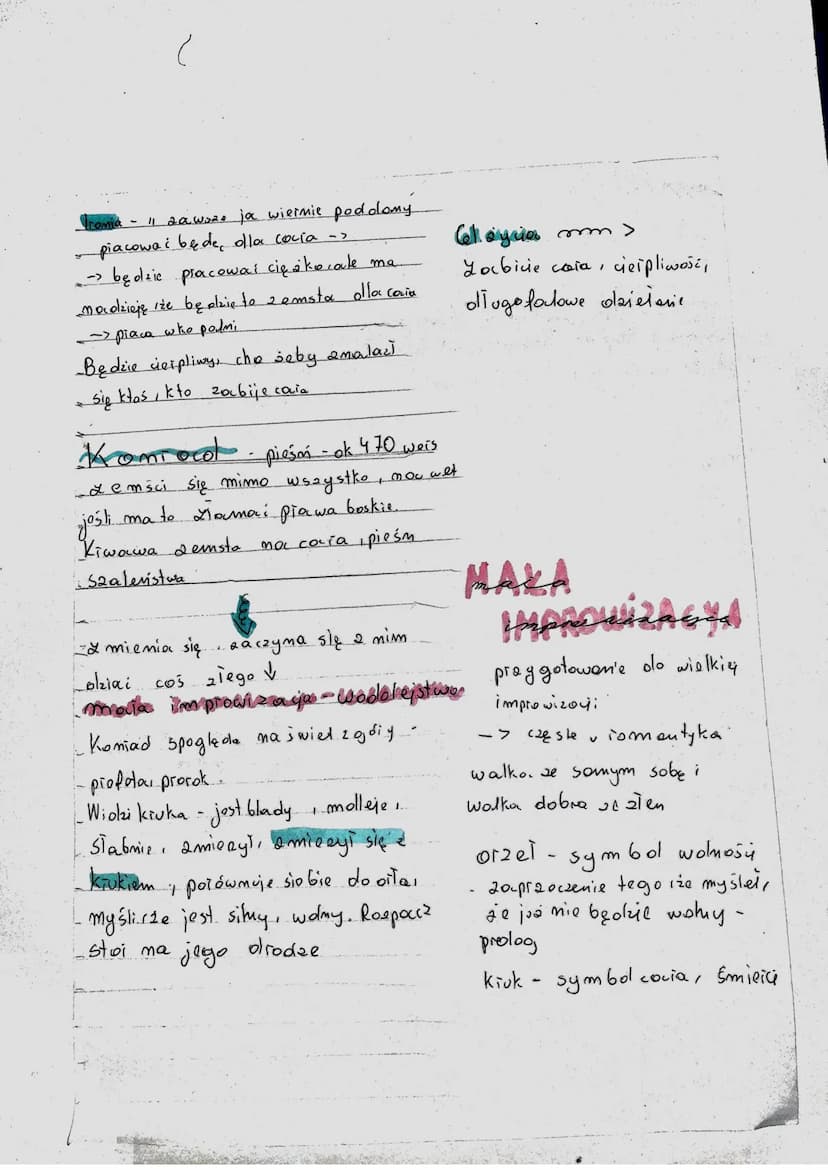 Ironia - „ zawsze ja wiernie poddany
pracować będę, dla cara ->
-> będzie pracować ciężko, ale ma
nadzieję, że będzie to zemsta dla cara
-> praca w kopalni
Będzie cierpliwy, chc żeby znalazł
się ktoś, kto zabije cara
Konrad - pieśń - ok 470 wers
Zemści się mimo wszystko, nawet
jeśli ma to złamać prawa boskie.
Krwawa zemsta na cara, pieśń
szaleństwa
Zmienia się, zaczyna się z nim
dziać coś złego ↓
mała improwizacja - wodolejstwo
Konrad spogląda na świat z góry -
- profeta, prorok.
Widzi kruka - jest blady, mdleje,
słabnie, zmierzył, zmierzył się z
krukiem, porównuje siebie do orła,
myśli, że jest silny, wolny. Rozpacz
stoi na jego drodze
Cel życia >
Zabicie cara, cierpliwość,
długofalowe działanie
MAŁA
mała
IMPROWIZACYA
improwizacja
przygotowanie do wielkiej
improwizacji
-> częste u romantyka
walka ze samym sobą i
walka dobra ze złem
orzeł - symbol wolności
- zaprzeczenie tego, że myślał,
że już nie będzie wolny -
prolog
Kruk - symbol cara, śmierci